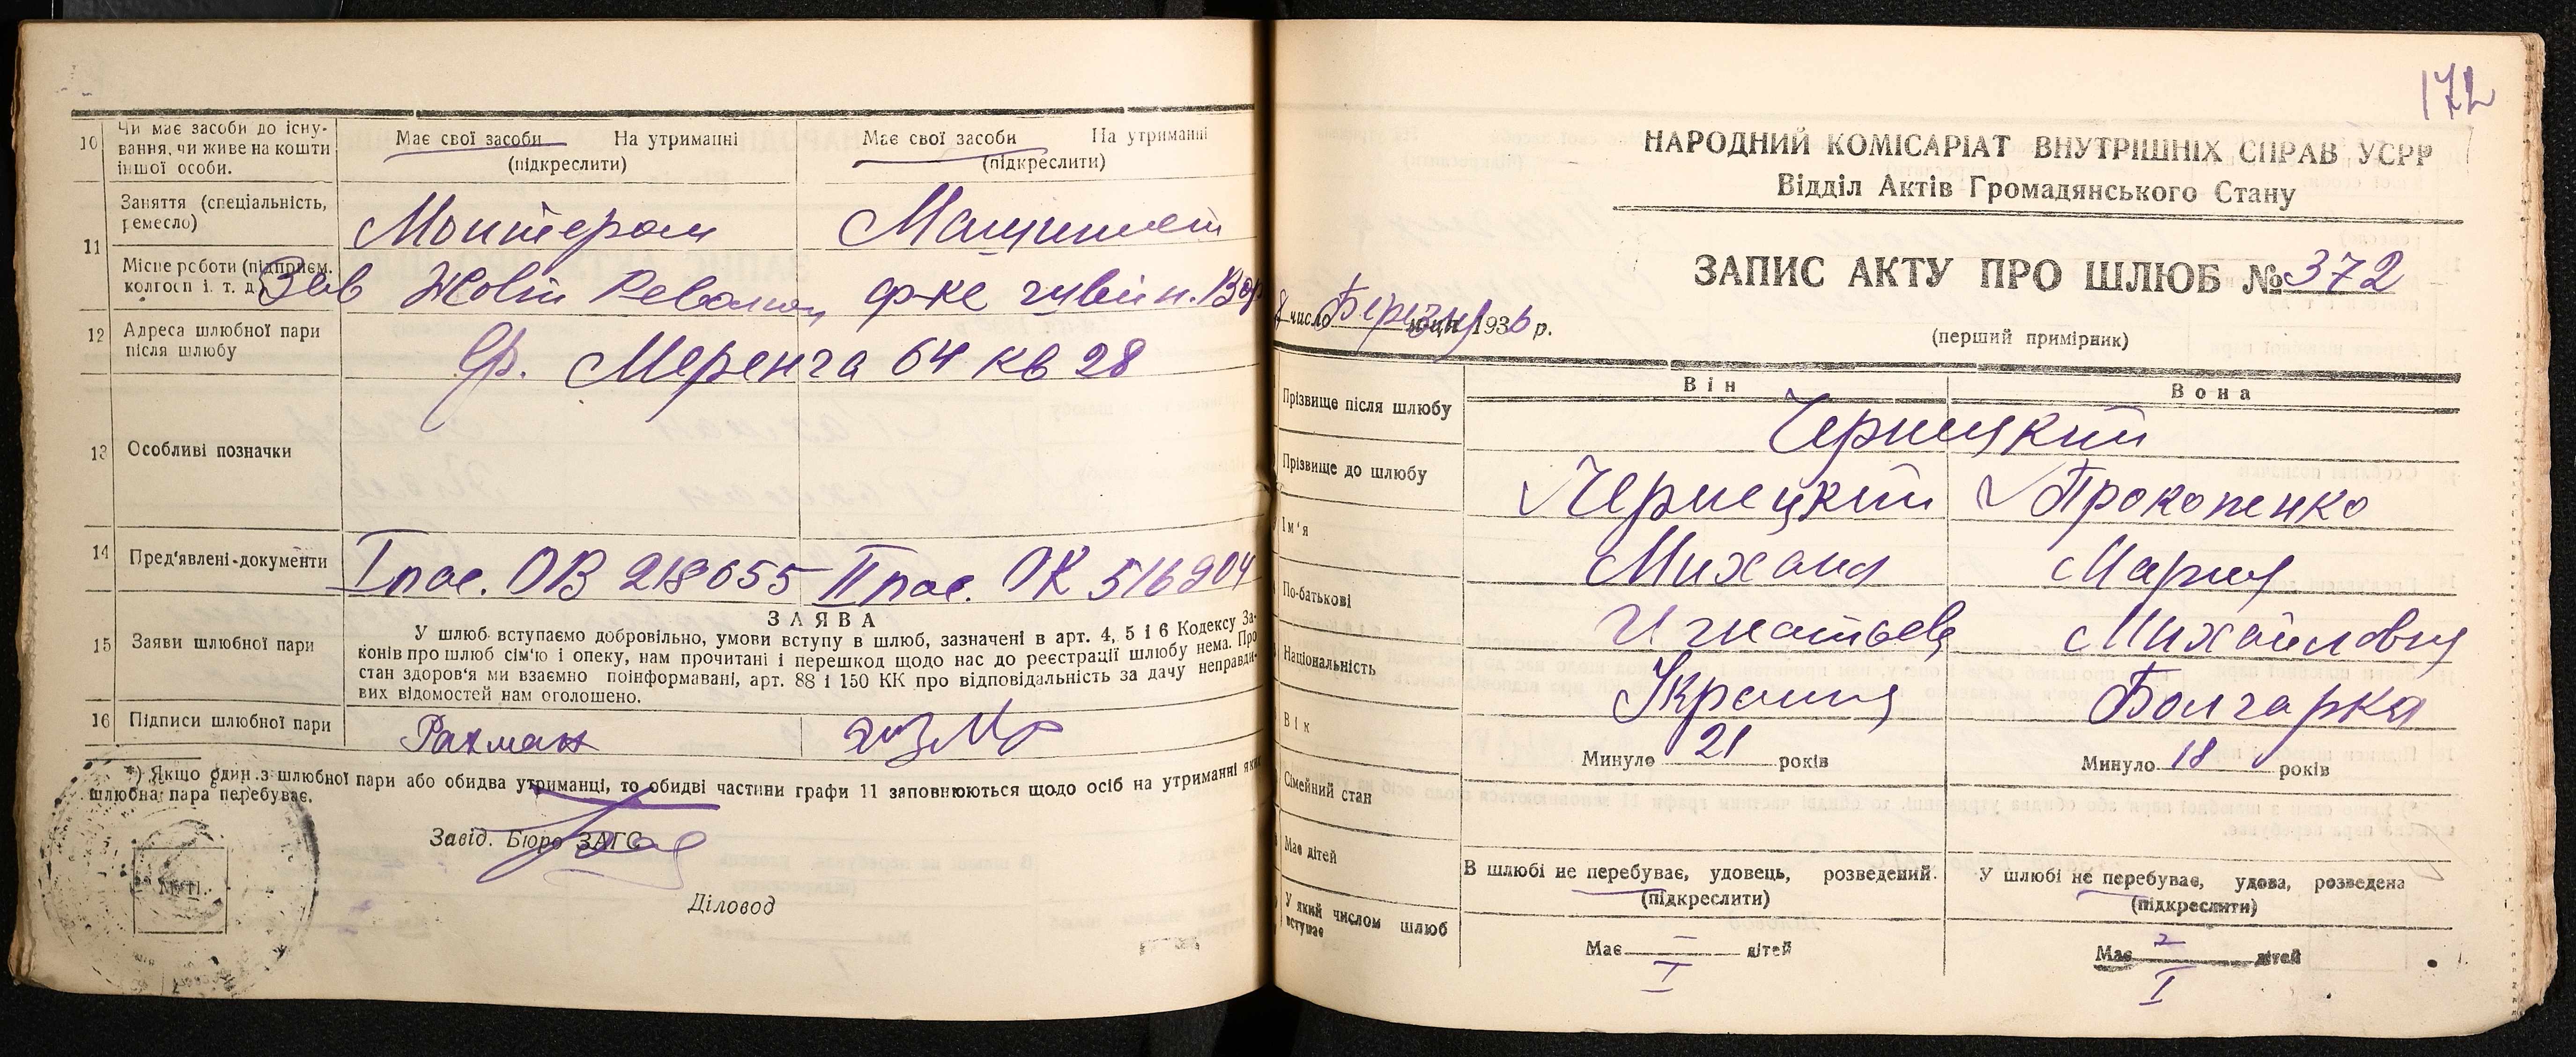 10 Чи має засоби до існу-
вання, чи живе на кошти
іншої особи.
Має свої засоби На утриманні
(підкреслити)
Має свої засоби На утриманні
(підкреслити)
11 Заняття (спеціальність,
ремесло)
Монтером
Машиніст
Місце роботи (підприєм.
колгосп і. т. д.)
Зав Жовт Револю
ф-ка
12 Адреса шлюбної пари
після шлюбу
64 кв 28
13 Особливі позначки
14 Пред'явлені документи
I пас. ОВ 218655 II пас. ОК 516904
15 Заяви шлюбної пари
ЗАЯВА
У шлюб вступаємо добровільно, умови вступу в шлюб, зазначені в арт. 4, 5 і 6 Кодексу За-
конів про шлюб сім'ю і опеку, нам прочитані і перешкод щодо нас до реєстрації шлюбу нема. Про
стан здоров'я ми взаємно поінформавані, арт. 88 і 150 КК про відповідальність за дачу неправди-
вих відомостей нам оголошено.
16 Підписи шлюбної пари
Рахман
*) Якщо один з шлюбної пари або обидва утриманці, то обидві частини графи 11 заповнюються щодо осіб на утриманні яких
шлюбна пара перебуває.
Завід. Бюро ЗАГС
Діловод
172
НАРОДНИЙ КОМІСАРІАТ ВНУТРІШНІХ СПРАВ УСРР
Відділ Актів Громадянського Стану
ЗАПИС АКТУ ПРО ШЛЮБ № 372
число Березня 1936 р.
(перший примірник)
Він
Вона
Прізвище після шлюбу
Чернецкий
Прізвище до шлюбу
Чернецкий
Прокопенко
Ім'я
Михаил
Мария
По-батькові
Игнатьев
Михайловна
Національність
Украинец
Болгарка
Вік
Минуло 21 років
Минуло 18 років
Сімейний стан
В шлюбі не перебуває, удовець, розведений.
(підкреслити)
У шлюбі не перебуває, удова, розведена
(підкреслити)
Має дітей
Має — дітей
Має дітей
У який числом шлюб
вступає
I
I